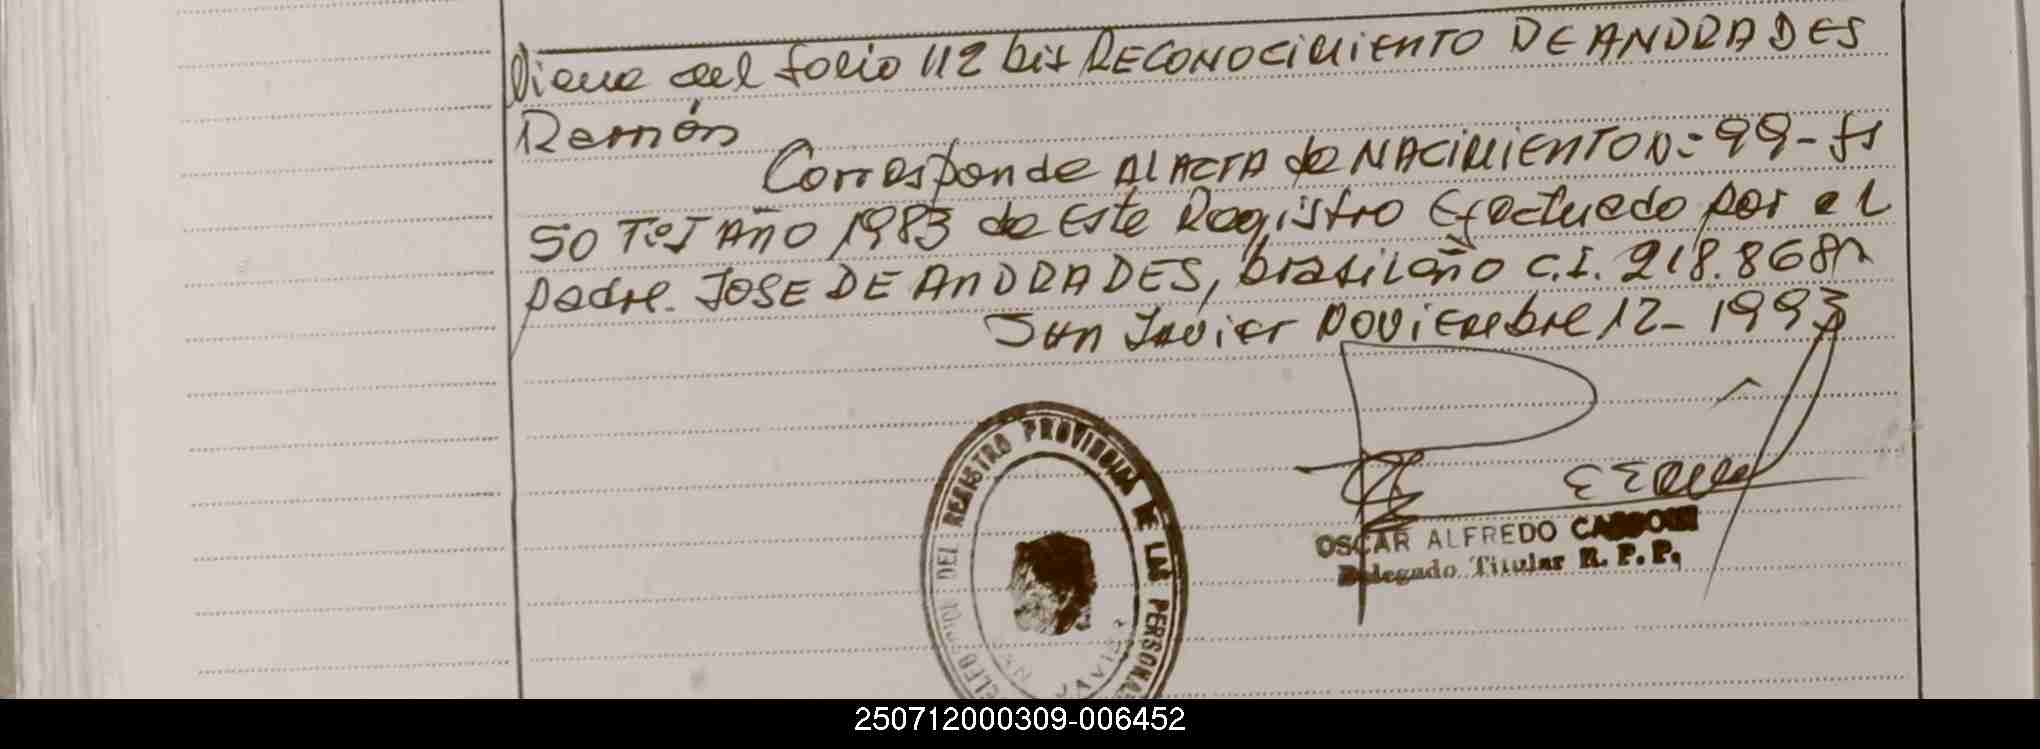 Viene del folio 112 bis RECONOCIMIENTO DE ANDRADES
Ramón
Corresponde Al ACTA de NACIMIENTO N= 99- fs
50 Tº I AÑO 1983 de Este Registro Efectuado por el
padre. JOSE DE ANDRADES, brasileño C.I. 218.868
San Javier Noviembre 12- 1993
REGISTRO PROVINCIAL DE LAS PERSONA
DEL
SAN JAVIER
OSCAR ALFREDO
Delegado Titular R. P. P.
250712000309-006452